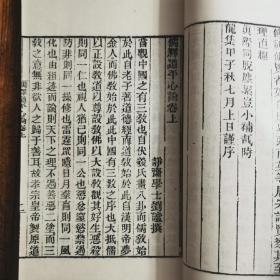 真際同脫膠累豈小補哉時
龍集甲子秋七月上日謹序
儒釋道平心論卷上
靜齋學士劉謐撰
嘗觀中國之有三教也自伏羲氏畫八卦而儒教始
於此自老子著道德經而道教始於此自漢明帝夢
金人而佛教始於此此中國有三教之序也大抵儒
以正設教道以尊設教佛以大設教觀其好生惡殺
則同一仁也視人猶己則同一公也懲忿窒慾禁過
防非則同一操修也雷霆眾聵日月群盲則同一風
化也由粗迹而論則天下之理不過善惡二塗而三
教之意無非欲人之歸于善耳故孝宗皇帝製原道